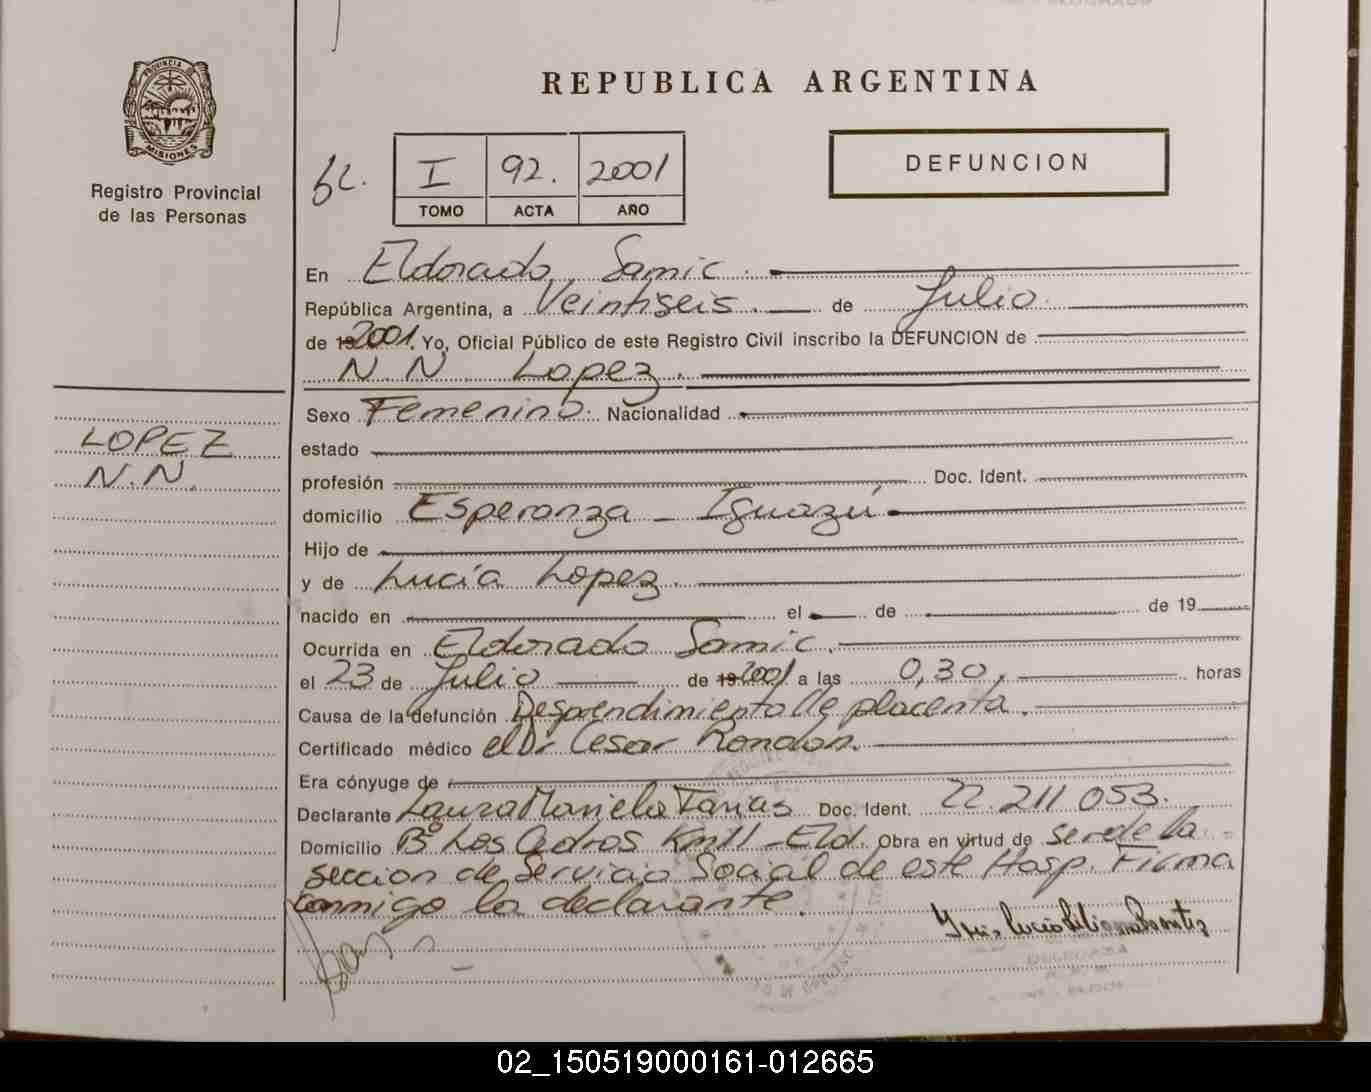 REPUBLICA ARGENTINA
PROVINCIA D
MISIONES
Registro Provincial
de las Personas
I 92. 2001
TOMO ACTA AÑO
DEFUNCION
En Eldorado, Samic.
República Argentina, a Veintiseis. de Julio.
de 19 2001. Yo, Oficial Público de este Registro Civil inscribo la DEFUNCION de
N. N Lopez.
Sexo Femenino. Nacionalidad
LOPEZ
N.N.
estado
profesión Doc. Ident.
domicilio Esperanza - Iguazú.
Hijo de
y de Lucía Lopez.
nacido en el de de 19
Ocurrida en Eldorado Samic.
el 23 de Julio de 19 2001 a las 0,30, horas
Causa de la defunción Desprendimiento de placenta.
Certificado médico el Dr Cesar Rondon.
Era cónyuge de
Declarante Laura Mariela Farias Doc. Ident. 22.211.053.
Domicilio Bº Los Cedros Km11 - Eld. Obra en virtud de ser de la
seccion de Servicio Social de este Hosp. Firma
conmigo la declarante.
02_150519000161-012665